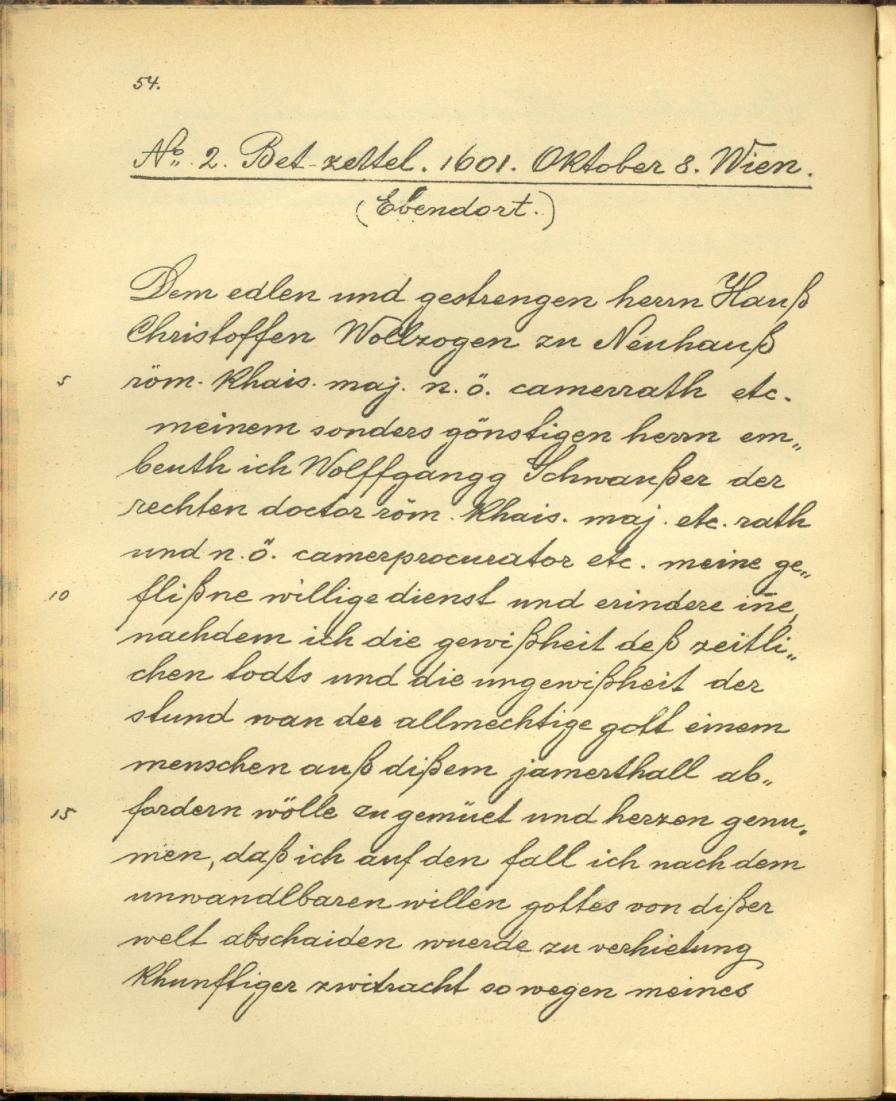 54.
No. 2. Bet-zettel. 1601. Oktober 8. Wien.
(Ebendort.)
Dem edlen und gestrengen herrn Hauß
Christoffen Wollzogen zu Neuhauß
5 röm. Khais. maj. n. ö. camerrath etc.
meinem sonders gönstigen herrn em„
beuth ich Wolffgangg Schwaußer der
rechten doctor röm. Khais. maj. etc. rath
und n. ö. camerprocurator etc. meine ge„
10 flißne willige dienst und erindere ine,
nachdem ich die gewißheit deß zeitli„
chen todts und die ungewißheit der
stund wan der allmechtige gott einem
menschen auß dißem jamerthall ab„
15 fordern wölle zu gemüet und herzen genu„
men, daß ich auf den fall ich nach dem
unwandlbaren willen gottes von dißer
welt abschaiden wuerde zu verhietung
Khunfftiger zwitracht so wegen meines